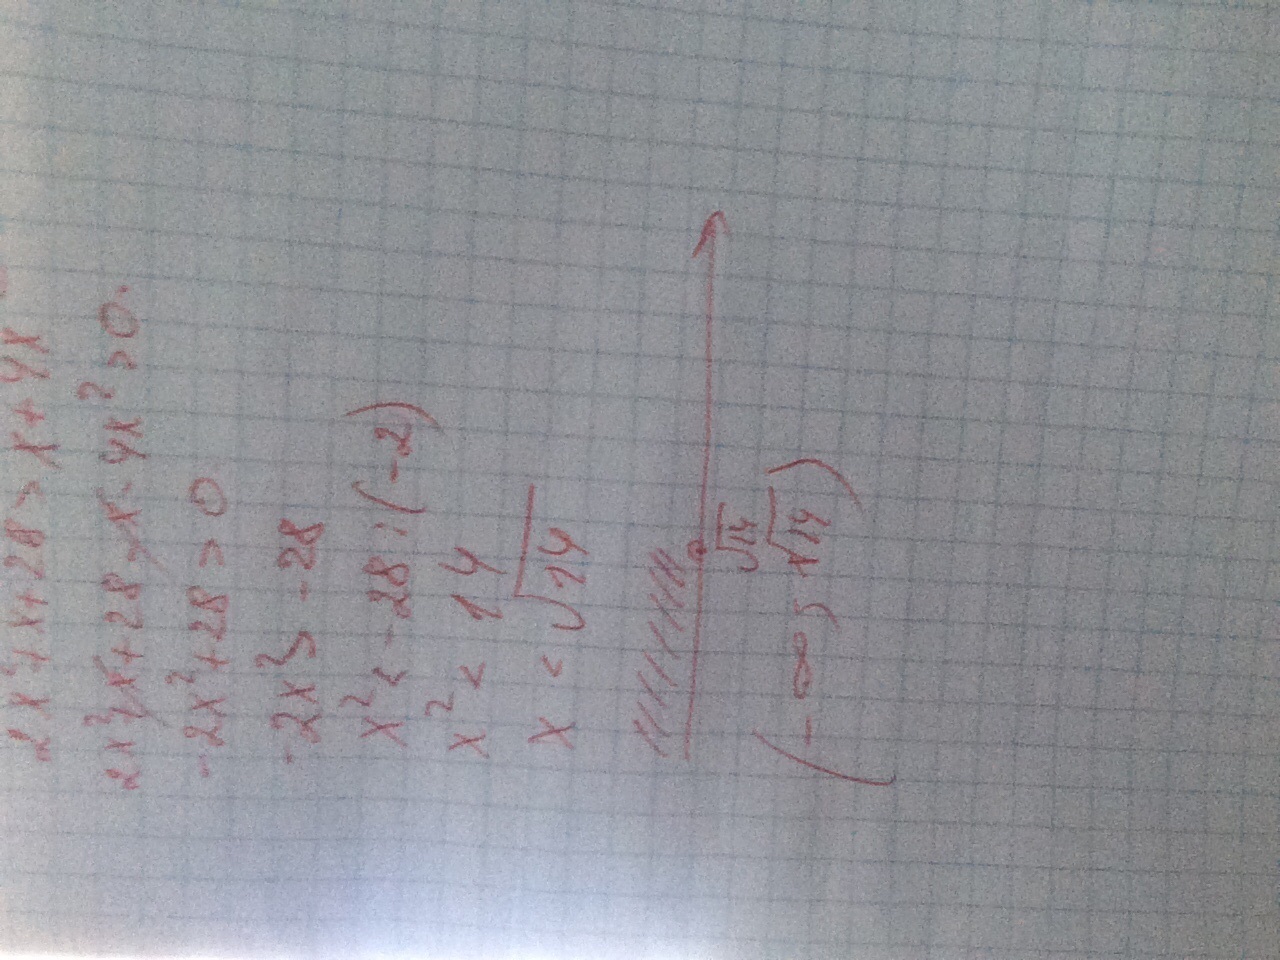 2x²+x+28>x+4x
2x²+x+28-x-4x²>0.
-2x²+28>0
-2x²>-28
x²<-28:(-2)
x²<14
x<√14
√14
(-∞; √14)